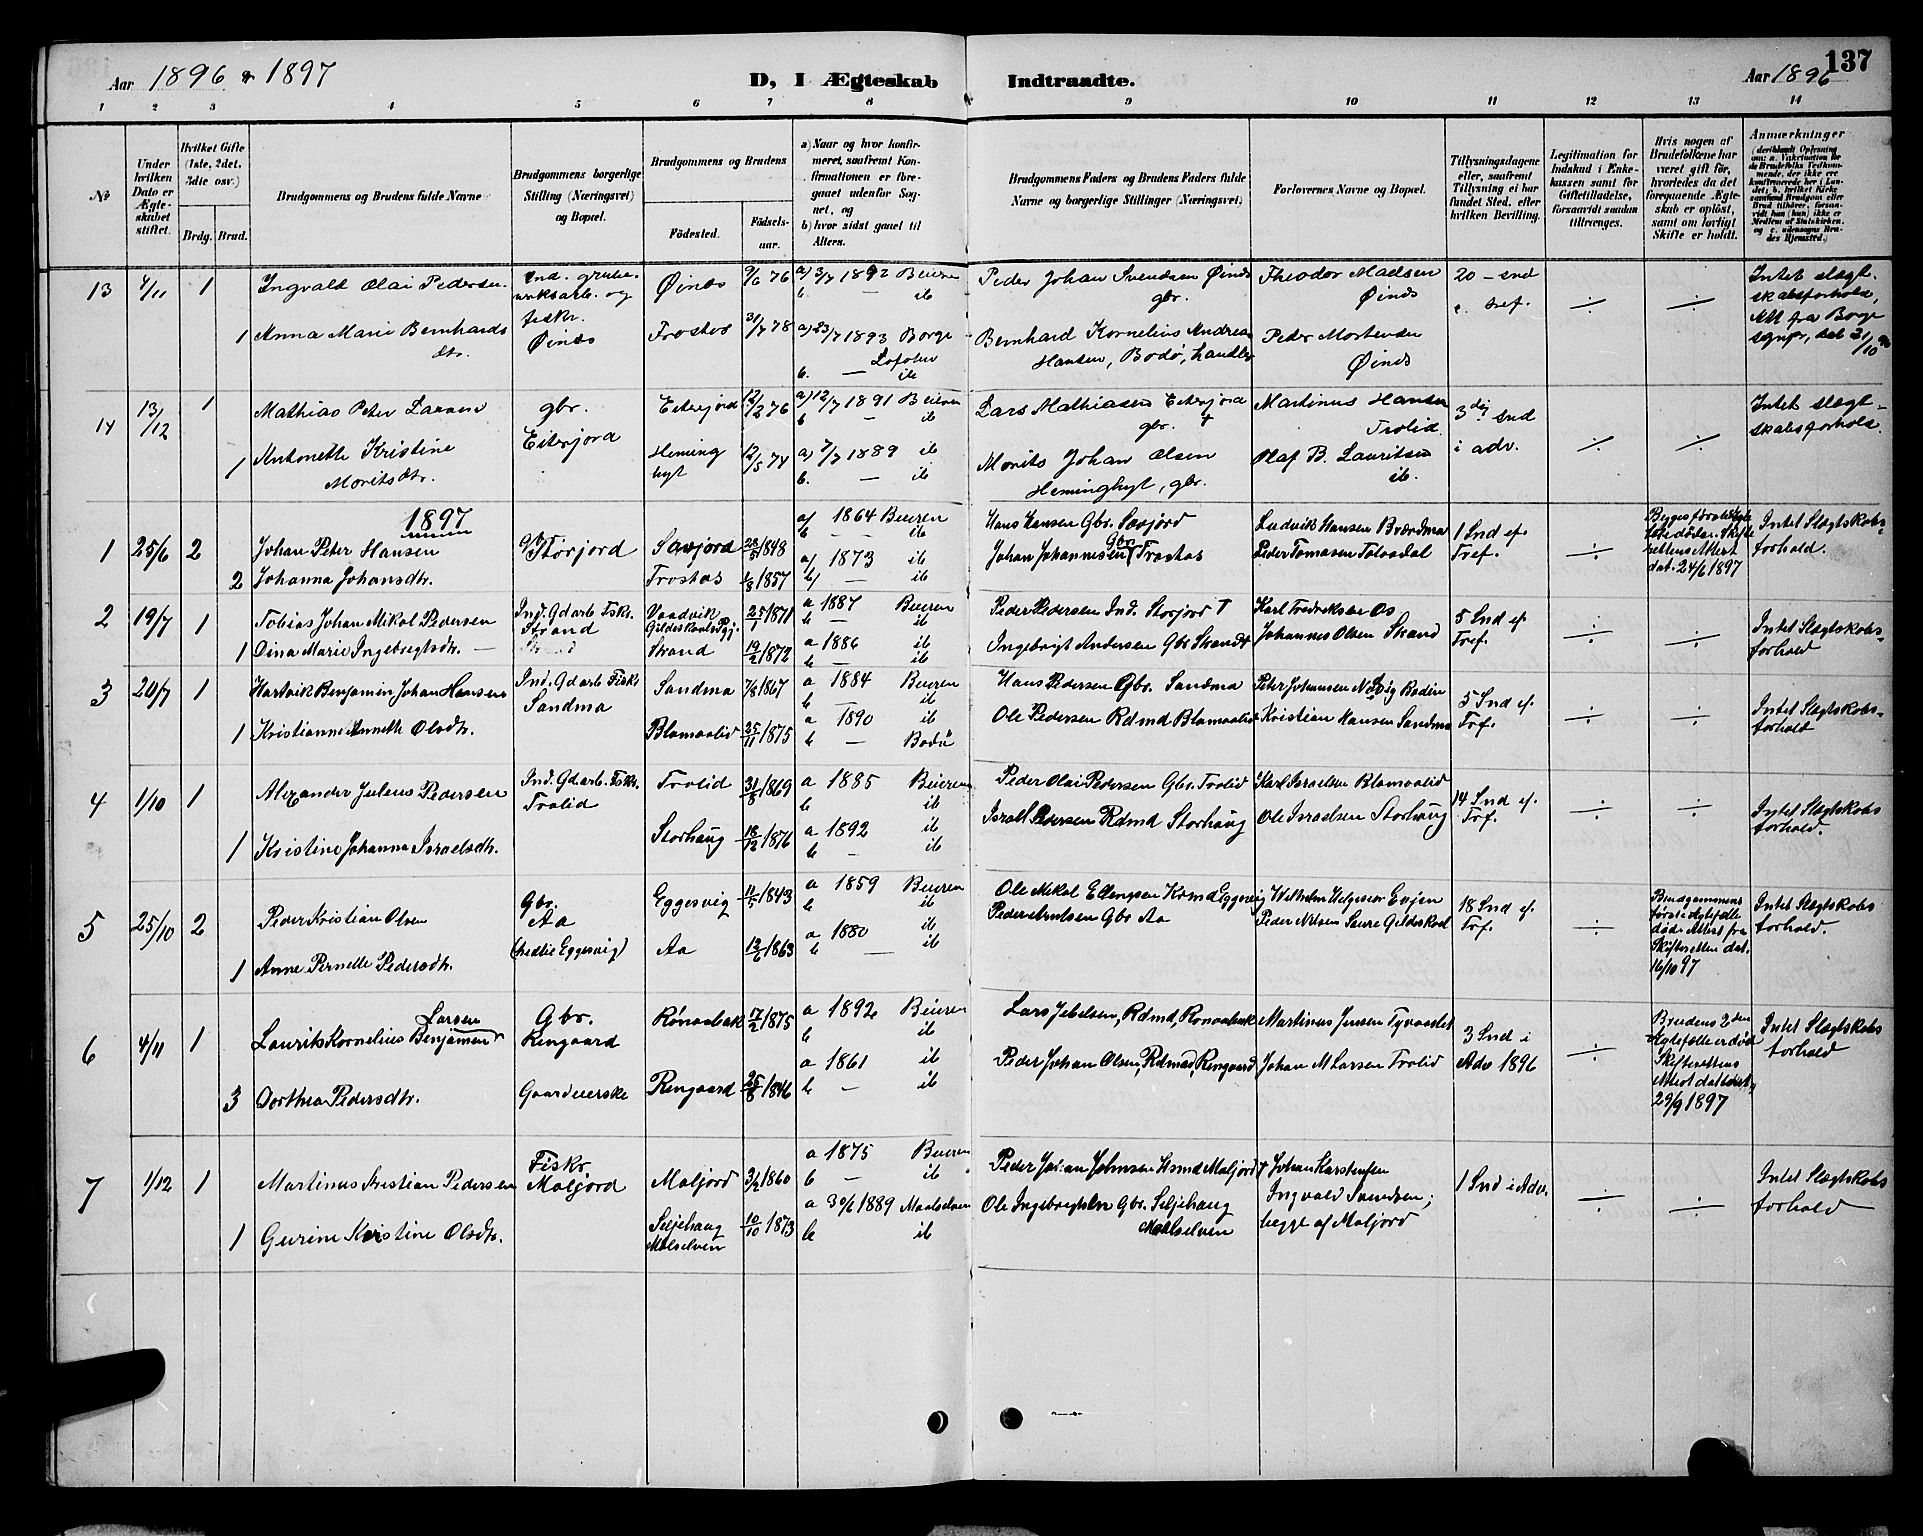 137
Aar 1896 & 1897
D, I Ægteskab Indtraadte.
Aar 1896
1 2 3 4 5 6 7 8 9 10 11 12 13 14
No
Under hvilken Dato er Ægteskabet stiftet.
Hvilket Gifte (1ste, 2det, 3die osv.)
Brdg. Brud.
Brudgommens og Brudens fulde Navne
Brudgommens borgerlige Stilling (Næringsvei) og Bopæl.
Brudgommens og Brudens
Fødested.
Fødselsaar.
a) Naar og hvor konfirmeret, saafremt Konfirmationen er foregaaet udenfor Sognet, og
b) hvor sidst gaaet til Alters.
Brudgommens Faders og Brudens Faders fulde Navne og borgerlige Stillinger (Næringsvei)
Forlovernes Navne og Bopæl.
Tillysningsdagene eller, saafremt Tillysning ei har fundet Sted, efter hvilken Bevilling.
Legitimation for Indskud i Enkekassen samt for Giftetilladelse, forsaavidt saadan tiltrænges.
Hvis nogen af Brudefolkene har været gift før, hvorledes da det foregaaende Ægteskab er opløst, samt om lovligt Skifte er holdt.
Anmærkninger
13 7/11 1 Ingvald Olai Pedersen Ind. grubeverksarb. og fiskr. Øinds Øinds 9/6 76 a) 3/7 1892 Beieren b. — ib Peder Johan Svendsen Øinds gbr. Theodor Madsen Øinds 20 – snd e. tref. ÷ ÷ Intet slægtskabsforhold, Att fra Borge sognpr, dat 31/10 96
1 Anna Marie Bernhardsdtr. Frostos 31/7 78 a) 23/7 1893 Borge Lofoten b. — ib Bernhard Kornelius Andreas Hansen, Bodø, handler Peder Mortensen Øinds
14 13/12 1 Mathias Peter Larsen gbr. Eiterjord Eiterjord 12/2 76 a) 12/7 1891 Beieren b — ib Lars Mathiasen Eiterjord gbr. † Martinus Hansen Trolid 3die snd i adv. ÷ ÷ Intet slægtskabsforhold.
1 Antonette Kristine Moritsdtr. Heminghyt 12/5 74 a) 7/7 1889 ib b. — ib Morits Johan Olsen Heminghyt, gbr. Olaf B. Lauritsen ib.
1897
1 25/6 2 Johan Peter Hansen Gbr Storjord Savjord 28/5 1848 a/ 1864 Beieren b — ib Hans Hansen Gbr. Savjord Ludvik Hansen Brændmo 1 Snd ef Tref. ÷ Begges første Ægtefelle døde. Skifterettens Attest dat. 24/6 1897 Intet Slægtskabsforhold.
2 Johanna Johansdtr. Frostos 1/8 1857 a/ 1873 ib b/ — ib Johan Johannesen Gbr Frostos Peder Tomasen Tolvadal
2 19/7 1 Tobias Johan Mikal Pedersen Ind. Gdarb. Fiskr. Strand Vaadvik Gildeskaals Pgj. 25/1 1871 a 1887 Beieren b — ib Peder Pedersen Ind. Storjord † Karl Fredriksen Os 5 Snd ef Tref. ÷ ÷ Intet Slægtskabsforhold
1 Oina Marie Ingebrigtsdtr. — Strand 19/2 1872 a 1886 ib b — ib Ingebrigt Andersen Gbr Strand † Johannes Olsen Strand
3 20/7 1 Hartvik Benjamin Johan Hansen Ind. Gdarb Fiskr Sandmo Sandmo 7/8 1867 a 1884 Beieren b — ib Hans Pedersen Gbr. Sandmo Peter Johansen Bodin 5 Snd ef. Tref. ÷ ÷ Intet Slægtskabsforhold
1 Kristianne Anneth Olsdtr. Blamoolid 25/11 1875 a 1890 ib b — Bodø Ole Pedersen Rdmd Blamoolid Kristian Hansen Sandmo
4 1/10 1 Alexander Julius Pedersen Ind. Gdarb. Fiskr. Trolid Trolid 31/8 1869 a 1885 Beieren b ib Peder Olai Pedersen Gbr. Trolid Karl Israelsen Blamoolid 14 Snd ef. Tref. ÷ ÷ Intet Slægtskabsforhold.
1 Kristine Johanna Israelsdtr. Storhaug 18/12 1876 a 1892 ib b — ib Israel Pedersen Rdmd Storhaug Ole Israelsen Storhaug
5 25/10 2 Peder Kristian Olsen Gbr. Aa (hedte Eggesvig) Eggesvig 11/5 1843 a 1859 Beieren b ib Ole Mikal Ellingsen Kvmd Eggesvig Vilhelm Helgesen Evjen 18 Snd ef. Tref. ÷ Brudgommens første Ægtefelle død. Attest fra Skifteretten dat. 16/10 97 Intet Slægtskabsforhold.
1 Anne Pernelle Pedersdtr. Aa 12/6 1863 a 1880 ib b — ib Peder Arntsen Gbr Aa Peder Nilsen Saure Gildeskaal
6 4/11 1 Laurits Kornelius Benjamin Larsen Gbr. Rengaard Rönaabak 17/2 1875 a 1892 Beieren b ib Lars Jebelsen, Rdmd, Ronaabak Martinus Jensen Tyvaadal 3 Snd i Adv 1896 ÷ Brudens 2den Ægtefelle er død Skifterettens Attest dateret 29/9 1897 Intet Slægtskabsforhold
3 Dorthea Pedersdtr. Gaardeierske Rengaard 25/8 1846 a 1861 ib b — ib Peder Johan Olsen, Rdmd, Rengaard Johan M Larsen Trolid
7 1/12 1 Martinus Kristian Pedersen Fiskr Moljord Moljord 3/2 1860 a 1875 Beieren b — ib Peder Johan Johnsen Hsmd Moljord † Johan Karstensen 1 Snd i Adv. ÷ ÷ Intet Slægtskabsforhold
1 Gurine Kristine Olsdtr. Seljehaug Malselven 10/10 1873 a 30/6 1889 Maalselven b ib Ole Ingebrigtsen Gbr. Seljehaug Maalselven Ingvald Svendsen; begge af Moljord